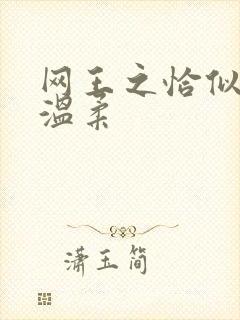 网王之恰似
温柔
潇玉简